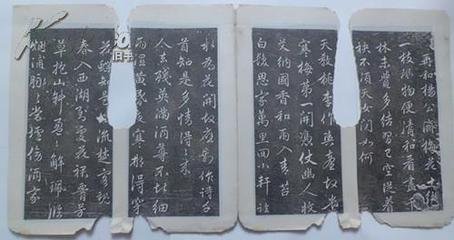 再和楊公濟梅花十絕
一枝風物便清和看盡
林未覺多結習已空從著
袂不須天女問云何
天教桃李作輿臺故遣
寒梅第一開憑仗幽人收
艾納國香和雨入青苔
白髮思家萬里回小軒臨
水為花開故應剩作詩千
首知是多情得得來
人去殘英滿酒尊不堪細
雨濕黃昏夜寒那得穿
花蝶知 流楚客魂
春入西湖到處花裙腰芳
草抱山斜盈盈解珮臨
煙浦脈脈當壚傷酒家